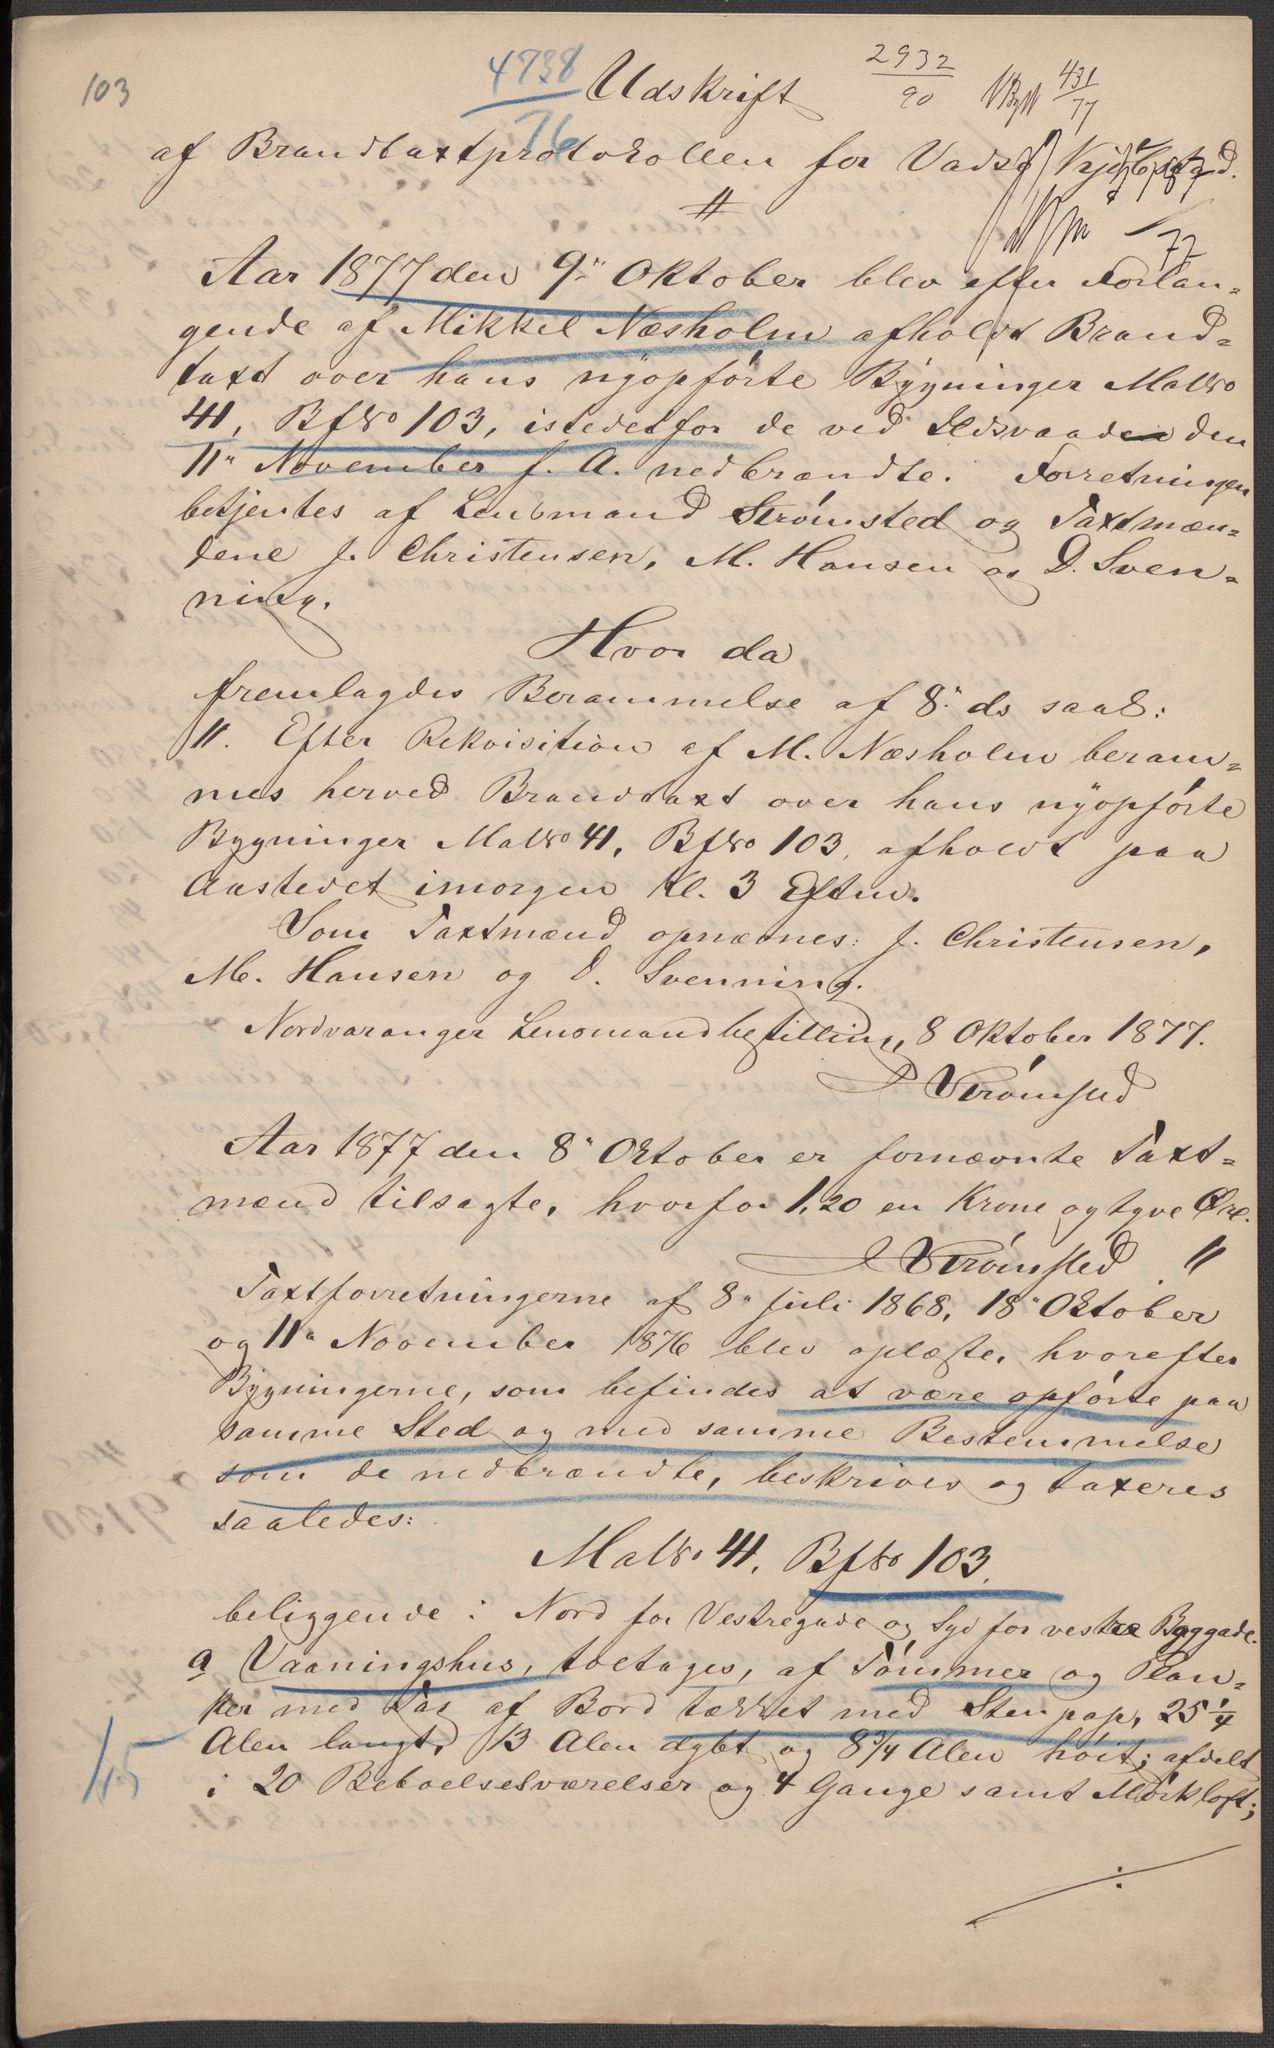 103
4738
76
2932
90
431
77
Udskrift
af Brandtaxtprotokollen for Vadsø Kjøbstad.
77
Aar 1877 den 9de Oktober blev efter Forlan-
gende af Mikkel Næsholm afholdt Brand-
taxt over hans nyopførte Bygninger MatNo
41, BfNo 103, istedetfor de ved Ildsvaaden den
11te November f. A. nedbrændte. Forretningen
betjentes af Lensmand Strømsted og Taxtmæn-
dene J. Christensen, M. Hansen og D. Sven-
ning.
Hvor da
fremlagdes Berammelse af 8de ds saal:
". Efter Rekvisition af M. Næsholm beram-
mes herved Brandtaxt over hans nyopførte
Bygninger MatNo 41, BfNo 103, afholdt paa
Aastedet imorgen Kl. 3 Eftm.
Som Taxtmænd opnævnes: J. Christensen,
M. Hansen og D. Svenning.
Nordvaranger Lensmandbestilling, 8 Oktober 1877.
Strømsted
Aar 1877 den 8de Oktober er fornævnte Taxt-
mænd tilsagte, hvorfor 1,20 en Krone og tyve Øre.
Strømsted. "
Taxtforretningerne af 8de Juli 1868, 18de Oktober
og 11te November 1876 blev oplæste, hvorefter
Bygningerne, som befindes at være opførte paa
samme Sted og med samme Bestemmelse
som de nedbrændte, beskrives og taxeres
saaledes:
MatNo 41, BfNo 103.
beliggende i Nord for Vestregade og Syd for vestre Byggade.
a Vaaningshus, toetages, af Tømmer og Plan-
ker med Tag af Bord tækket med Stenpap, 25 1/4
Alen langt, 13 Alen dybt og 8 3/4 Alen høit; afdelt
i 20 Beboelsesværelser og 4 Gange samt Mørkloft;
115